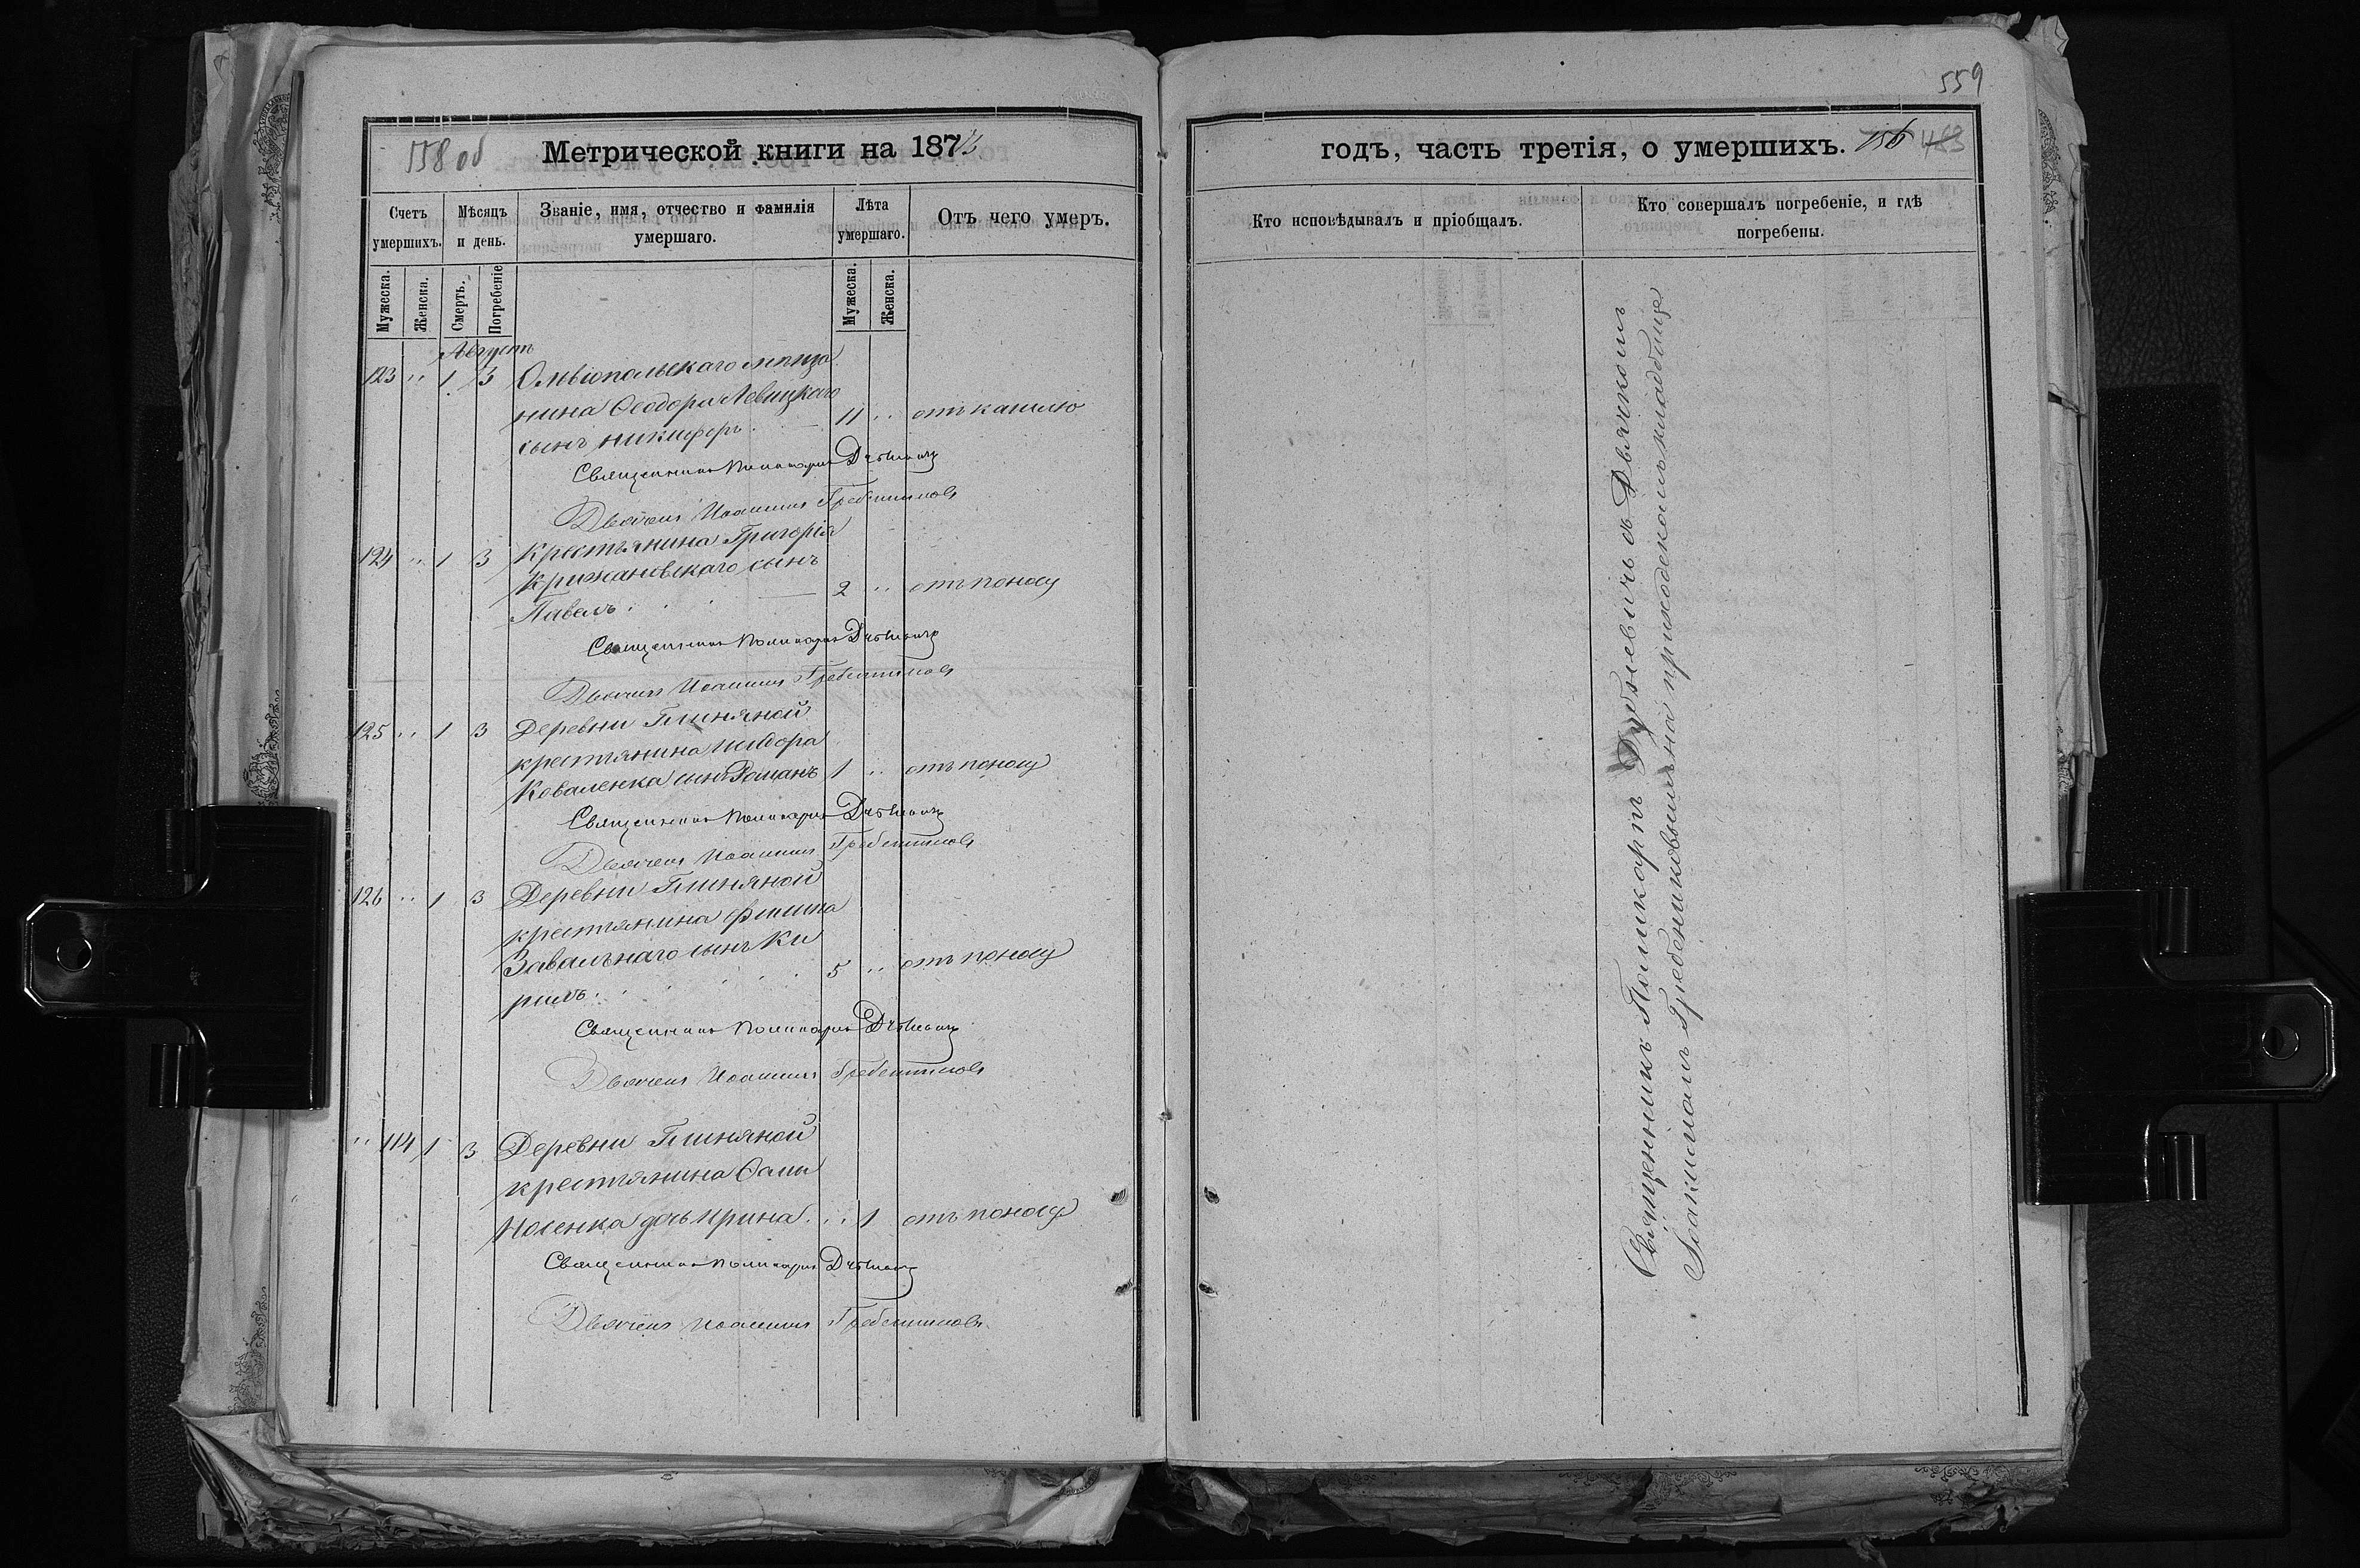 558 об
Метрической книги на 187
Счетъ умершихъ.
Мѣсяцъ и день.
Званіе, имя, отчество и фамилія умершаго.
Лѣта умершаго.
Отъ чего умеръ.
Мужеска.
Женска.
Смерть.
Погребеніе
Мужеска.
Женска.
Августъ
123 " 1 3 Ольвіопольскаго мѣща
нина Ѳеодора Левицкаго
сынъ Никифоръ 11 " отъ кашлю
Священникъ Поликарпъ Дубневичъ
Дьячекъ Иоаннъ Гребенниковъ
124 " 1 3 Крестьянина Григорія
Крижановскаго сынъ
Павелъ 2 " отъ поносу
Священникъ Поликарпъ Дубневичъ
Дьячекъ Иоаннъ Гребенниковъ
125 " 1 3 Деревни Глиняной
крестьянина Исидора
Коваленка сынъ Романъ 1 " отъ поносу
Священникъ Поликарпъ Дубневичъ
Дьячекъ Иоаннъ Гребенниковъ
126 " 1 3 Деревни Глиняной
крестьянина Филипа
Завальнаго сынъ Ки
рилъ 5 " отъ поносу
Священникъ Поликарпъ Дубневичъ
Дьячекъ Иоаннъ Гребенниковъ
" 114 1 3 Деревни Глиняной
крестьянина Ѳомы
Носенка дочь Ирина " 1 отъ поносу
Священникъ Поликарпъ Дубневичъ
Дьячекъ Иоаннъ Гребенниковъ
559
годъ, часть третія, о умершихъ. 156 483
Кто исповѣдывалъ и пріобщалъ.
Кто совершалъ погребеніе, и гдѣ
погребены.
Священникъ Поликарпъ Дубневичъ съ Дьячкомъ
Іоакимомъ Гребениковымъ на приходскомъ кладбище